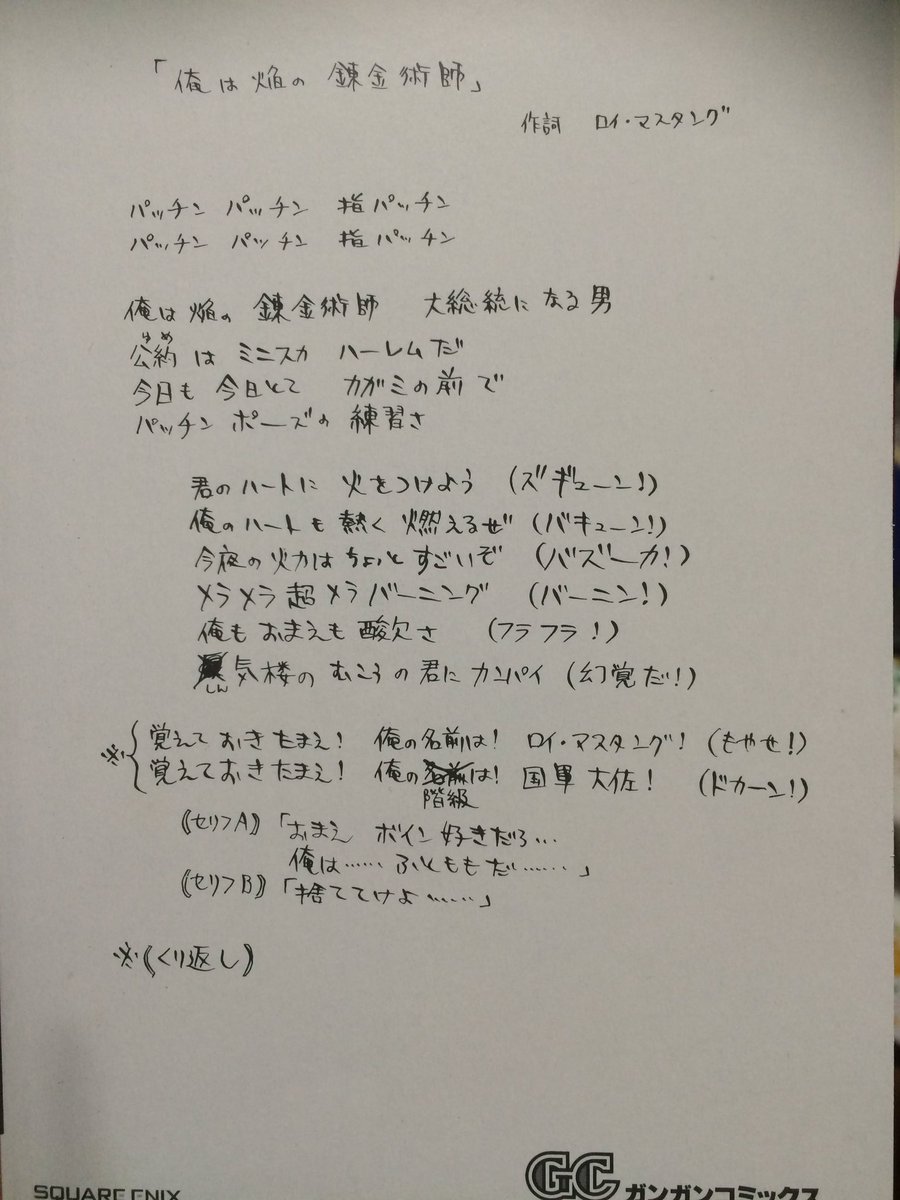 「俺は焔の錬金術師」
作詞 ロイ・マスタング
パッチン パッチン 指パッチン
パッチン パッチン 指パッチン
俺は焔の 錬金術師 大総統になる男
ゆめ
公約は ミニスカ ハーレムだ
今日も 今日とて カガミの前で
パッチン ポーズの 練習さ
君のハートに 火をつけよう (ズギューン!)
俺のハートも 熱く 燃えるぜ (バキューン!)
今夜の火力は ちょっと すごいぞ (バズーカ!)
メラメラ 超メラ バーニング (バーニン!)
俺も おまえも 酸欠さ (フラフラ!)
しん気楼の むこうの君に カンパイ (幻覚だ!)
※ 覚えておきたまえ! 俺の名前は! ロイ・マスタング! (もやせ!)
覚えておきたまえ! 俺の名前は! 国軍大佐! (ドカーン!)
階級
《セリフA》「おまえ ボイン好きだろ…
俺は…… ふとももだ……」
《セリフB》「捨ててけよ……」
※《くり返し》
SQUARE ENIX
GC ガンガンコミックス